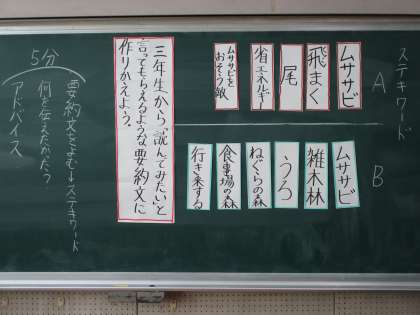 ステキワード
A
ムササビ
飛まく
尾
省エネルギー
ムササビを
おそう敵
B
ムササビ
雑木林
うろ
ねぐらの森
食事場の森
行き来する
三年生から「読んでみたい」と
言ってもらえるような要約文に
作りかえよう。
5分
要約文をよむ→ステキワード
何を伝えたかった?
アドバイス